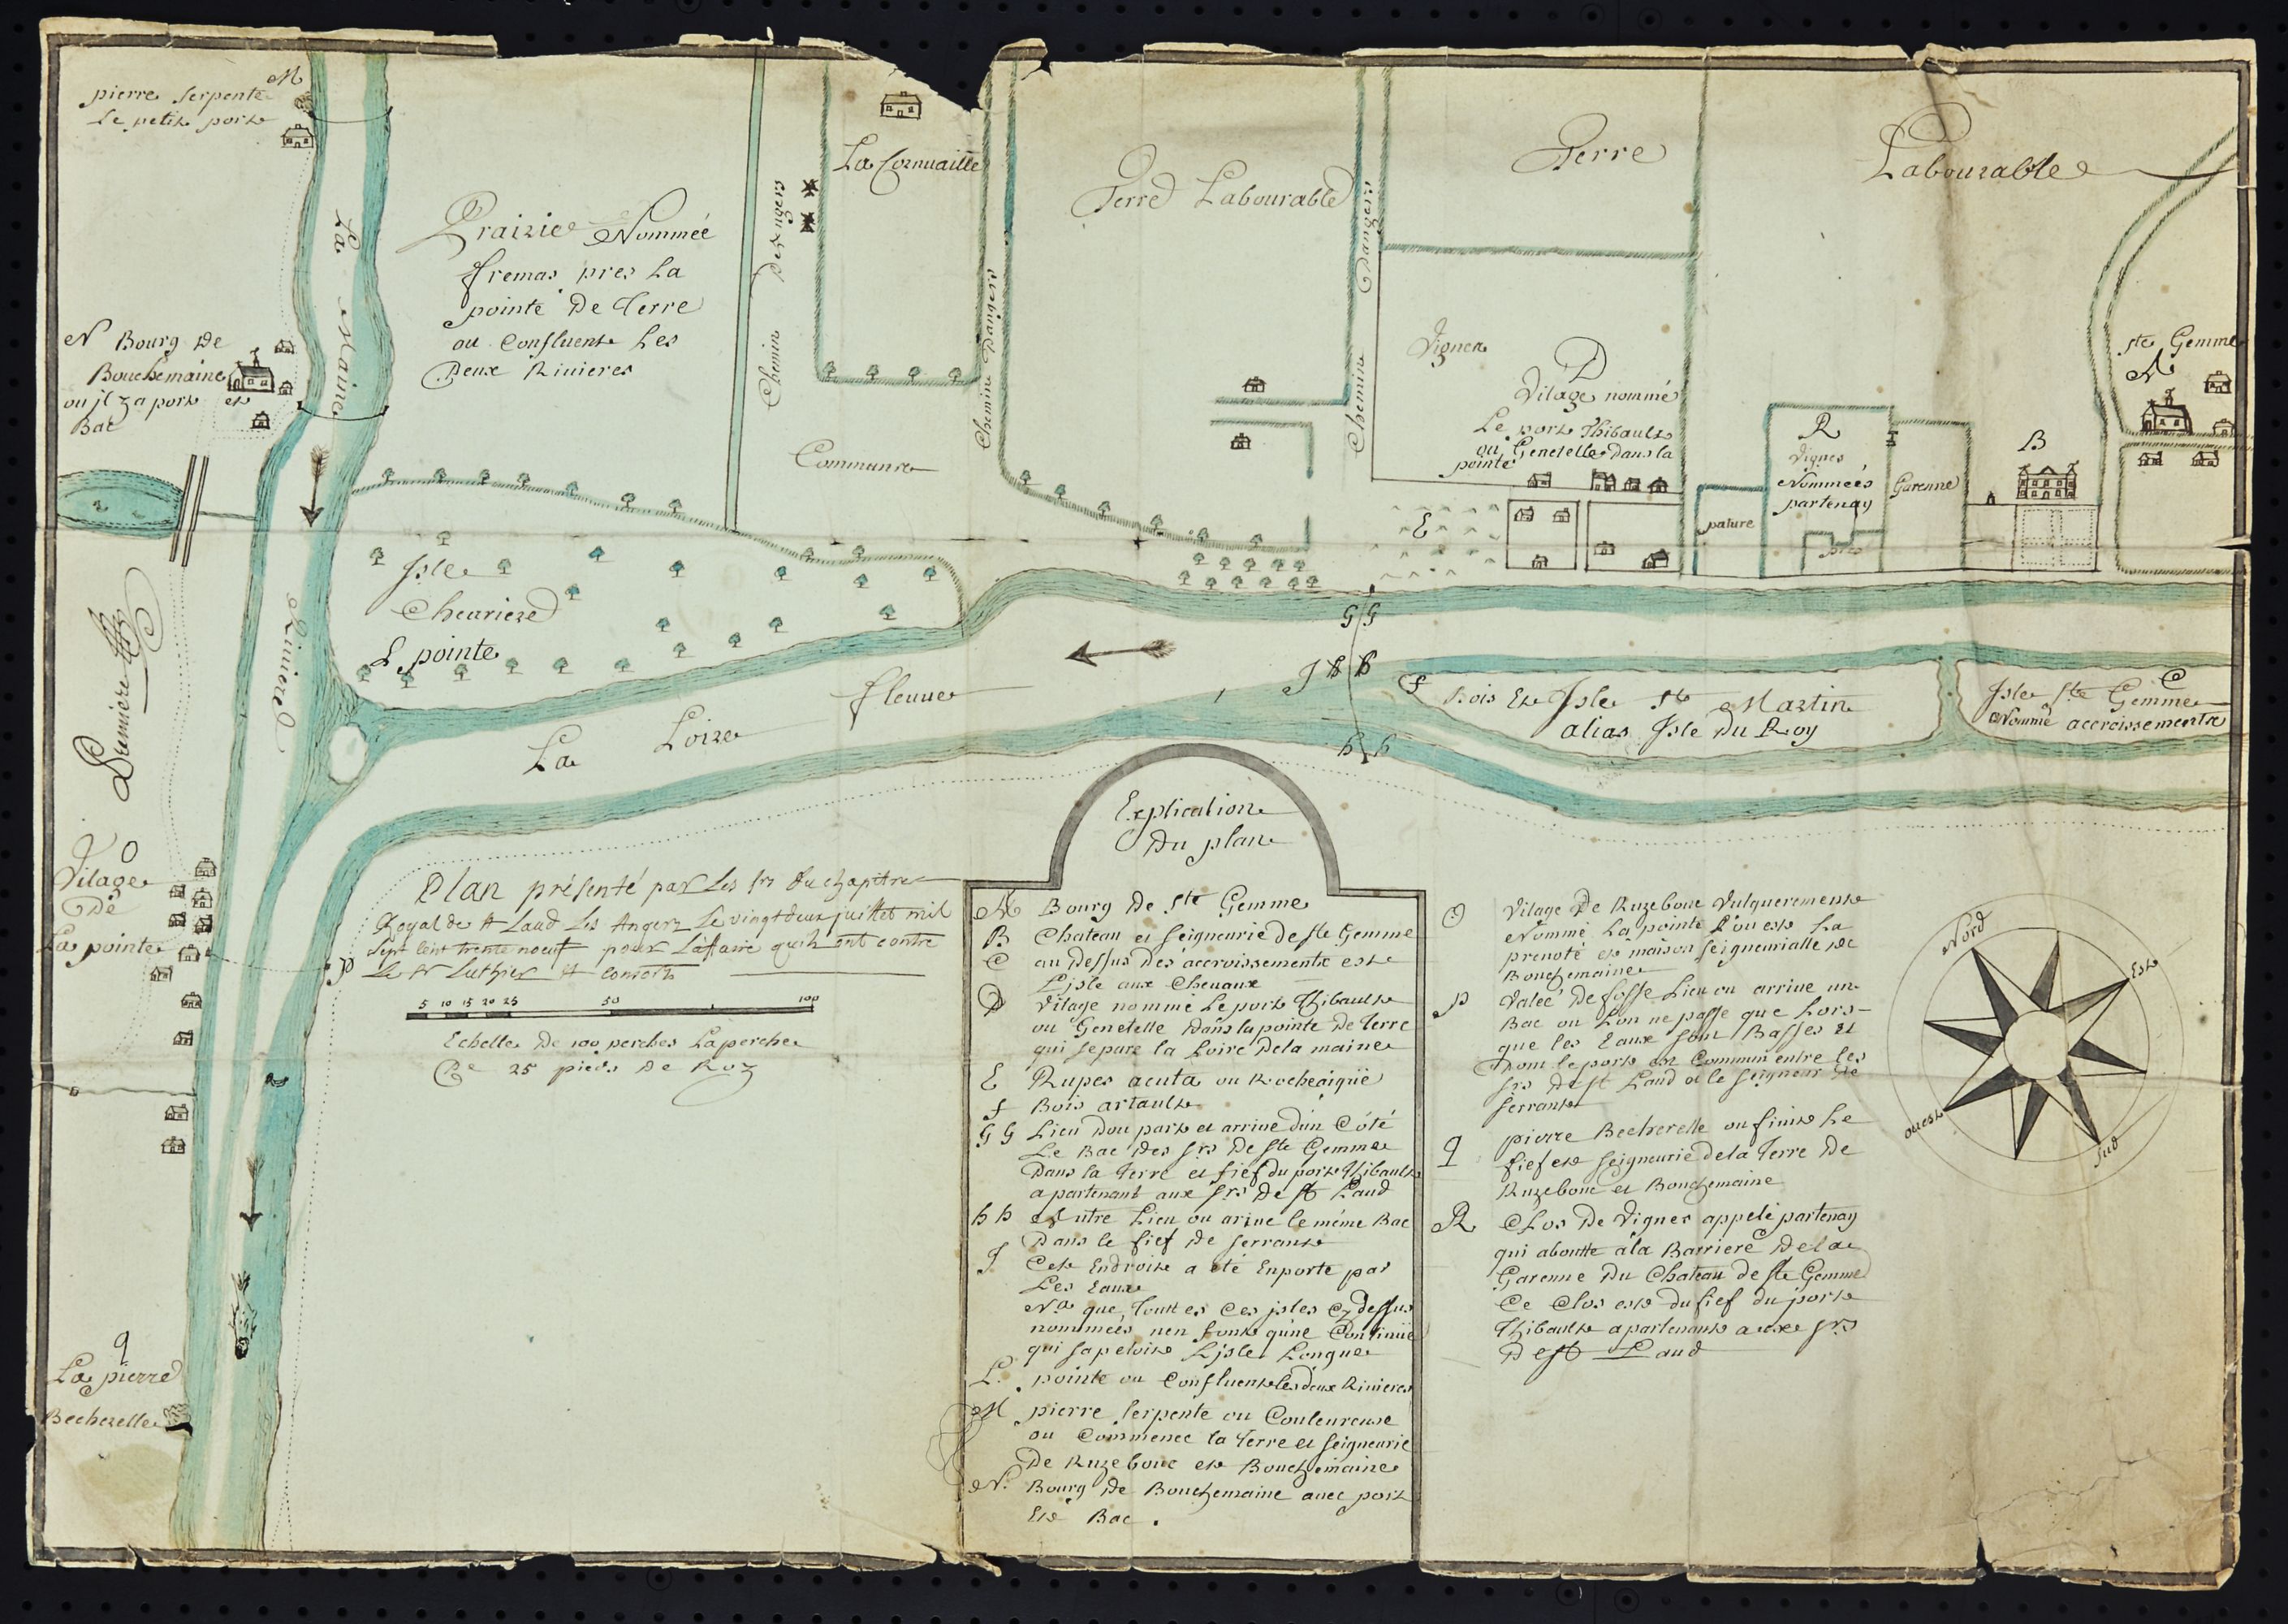 M
pierre Serpente
Le petit port
La Maine
Riviere
Prairie Nommée
fremas pres La
pointe De Terre
ou Confluent Les
Deux Rivieres
Chemin Dexngers
La Cornuaille
Chemin Dangers
Terre Labourable
Chemin Dangers
Terre
Labourable
N Bourg de
Bouchemaine
ou jl y a port et
Bac
Vignes
D
Vilage nommé
Le port Thibault
ou Genetelle Dans la
pointe
ste Gemme
A
R
Vignes
Nommées
partenay
Garenne
B
Commune
E
pature
pres
Isle
Cheuriere
L pointe
GG
J
h h
f
Bois Et Isle St Martin
alias Isle Du Roy
C
Isle Ste Gemme
Nommé accroissements
h h
La Loire fleuve
O
Vilage
De
La pointe
p
Plan présenté par Les srs du chapitre
Royal de St Laud Les Angers Le vingt deux juillet mil
Sept Cent trente neuf pour L'affaire qu'jls ont contre
Le Sr Luthier et consorts
5 10 15 20 25 50 100
Echelle De 100 perches La perche
De 25 pieds De Roy
q
La pierre
Becherelle
Explication
Du plan
A Bourg De Ste Gemme
B Chateau et Seigneurie de ste Gemme
C au Dessus Des accroissements est
L'jsle aux Chevaux
D Vilage nommé Le port Thibault
ou Genetelle Dans la pointe De Terre
qui separe la Loire De la maine
E Rupes acuta ou Rocheaiguë
f Bois artault
GG Lieu Dou part et arrive Dun Côté
Le Bac Des srs De ste Gemme
Dans la Terre et fief du port Thibault
apartenant aux srs De St Laud
h h Autre Lieu ou arive le même Bac
Dans le fief De serrant
J Cet Endroit a été Enporté par
Les Eaux
Na que Toutt es Ces jsles Cy dessus
nommées nen font qu'ne Continüe
qui sapeloit L'jsle Longue
L. pointe ou Confluent les deux Rivieres
M pierre serpente ou Couleureuse
ou Commence la Terre et seigneurie
De Ruzebouc et Bouchemaine
N. Bourg De Bouchemaine avec port
Et Bac.
O Vilage De Ruzebouc Vulguerement
Nommé La pointe D'ou est La
prevoté et maison seigneurialle de
Bouchemaine
p Valeé De fosse Lieu ou arrive un
Bac ou Lon ne passe que Lors-
que les Eaux sont Basses et
Dont le port est Commun entre les
srs De St Laud et le seigneur De
serrant
q pierre Becherelle ou finit Le
fief et seigneurie de la Terre De
Ruzebouc et Bouchemaine
R Clos De Vignes appelé partenay
qui aboutte à la Barriere De la
Garenne Du Chateau de ste Gemme
Ce Clos est du fief du port
Thibault apartenant aux srs
De St Laud
Nord
Est
Sud
ouest